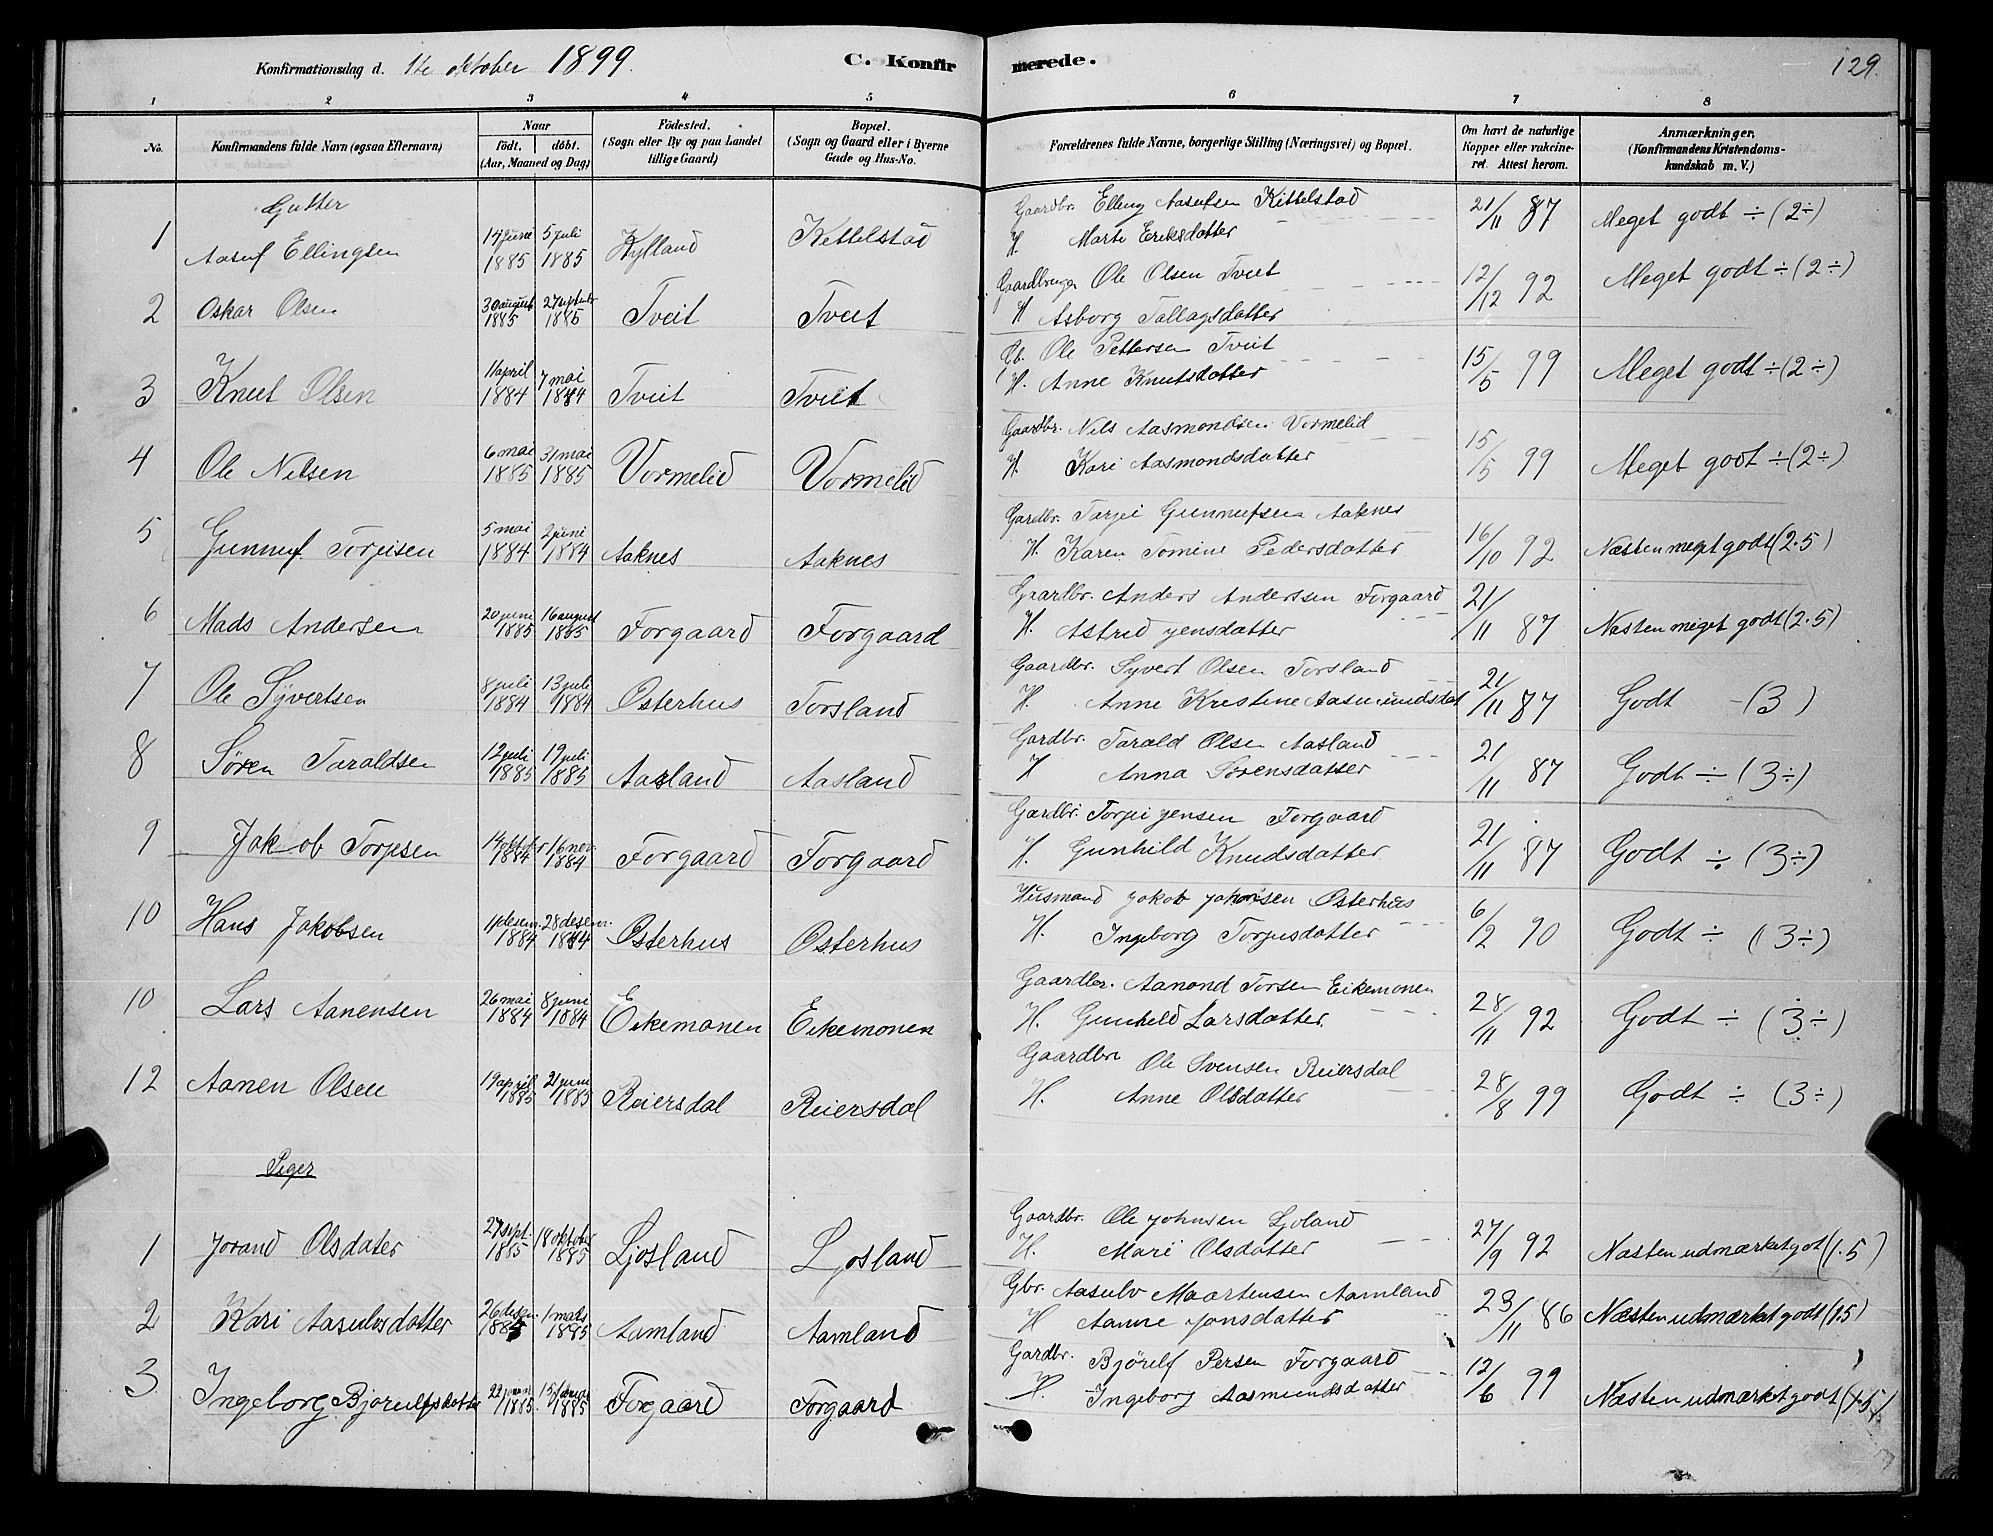 Konfirmationsdag d. 1te oktober 1899. C. Konfirmerede. 129.
1 2 3 4 5 6 7 8
No. Konfirmandens fulde Navn (ogsaa Efternavn) Naar født. døbt. (Aar, Maaned og Dag) Fødested. (Sogn eller By og paa Landet tillige Gaard) Bopæl. (Sogn og Gaard eller i Byerne Gade og Hus-No. Forældrenes fulde Navne, borgerlige Stilling (Næringsvei) og Bopæl. Om havt de naturlige Kopper eller vakcineret. Attest herom. Anmærkninger. (Konfirmandens Kristendomskundskab m. V.)
Gutter
1 Aasuf Ellingsen 14 june 1885 5 juli 1885 Kylland Kettelstad Gaardbr. Elling Aasufsen Kittelstad
H. Marte Eriksdatter 21/11 87 Meget godt ÷ (2÷)
2 Oskar Olsen 30 august 1885 27 septebr 1885 Tveit Tveit Gaardbruger Ole Olsen Tveit
H Asborg Tallagsdatter 12/12 92 Meget godt ÷ (2÷)
3 Knut Olsen 11 april 1884 7 mai 1884 Tveit Tveit Gb. Ole Pettersen Tveit
H. Anne Knutsdatter 15/5 99 Meget godt ÷ (2÷)
4 Ole Nilsen 6 mai 1885 31 mai 1885 Vormelid Vormelid Gaardbr. Nils Aasmondsen Vormelid
H. Kari Aasmondsdatter 15/5 99 Meget godt ÷ (2÷)
5 Gunnuf Torjeisen 5 mai 1884 2 juni 1884 Aaknes Aaknes Gardbr. Tarjei Gunnufsen Aaknes
H. Karen Tomine Pedersdatter 16/10 92 Næsten meget godt (2.5)
6 Mads Andersen 20 juni 1885 16 august 1885 Forgaard Forgaard Gaardbr. Anders Anderssen Forgaard
H. Astrid Jensdatter 21/11 87 Næsten meget godt (2.5)
7 Ole Syvertsen 8 juli 1884 13 juli 1884 Osterhus Torsland Gaardbr. Syvert Olsen Torsland
H. Anne Kristine Aasmundsdat 21/11 87 Godt - (3)
8 Søren Taraldsen 12 juli 1885 19 juli 1885 Aasland Aasland Gardbr. Tarald Olsen Aasland
H Anna Sørensdatter 21/11 87 Godt ÷ (3÷)
9 Jakob Torjesen 14 oktober 1884 16 nov. 1884 Forgaard Forgaard Gardbr. Torjei Jensen Forgaard
H. Gunhild Knudsdatter 21/11 87 Godt ÷ (3÷)
10 Hans Jakobsen 11 desem. 1884 28 desem. 1884 Osterhus Osterhus Husmand Jakob Johnsen Osterhus
H. Ingeborg Torjusdatter 6/2 90 Godt ÷ (3÷)
10 Lars Aanensen 26 mai 1884 8 juni 1884 Eikemonen Eikemonen Gaardbr. Aanond Torsen Eikemonen
H. Gunhild Larsdatter. 28/11 92 Godt ÷ (3÷)
12 Aanen Olsen 19 april 1885 21 juni 1885 Reiersdal Reiersdal Gaardbr Ole Svensen Reiersdal
H. Anne Olsdatter 28/8 99 Godt ÷ (3÷)
Piger
1 Jorand Olsdater 27 sept. 1885 18 oktober 1885 Ljosland Ljosland Gaardbr. Ole Johnsen Ljoland
H. Mari Olsdatter 27/9 92 Næsten udmærket got (1.5)
2 Kari Aasulvsdatter 26 desem. 1885 1 mads 1885 Aamland Aamland Gbr. Aasulv Maartensen Aamland
H Aanne Jonsdatter 23/11 86 Næsten udmærket godt (1.5)
3 Ingeborg Bjørulfsdatter 22 1885 15 1885 Forgaard Forgaard Gardbr. Bjørulf Persen Forgaard
H. Ingeborg Aasmundsdatter 12/6 99 Næsten udmærket godt (1.5)